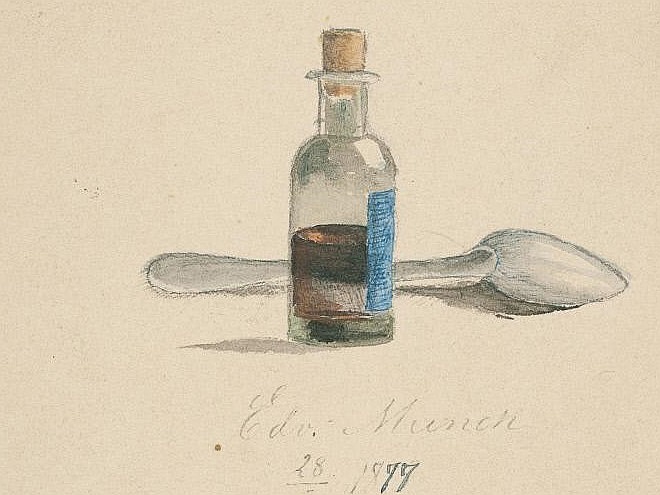 Edv. Munch
28. 1877